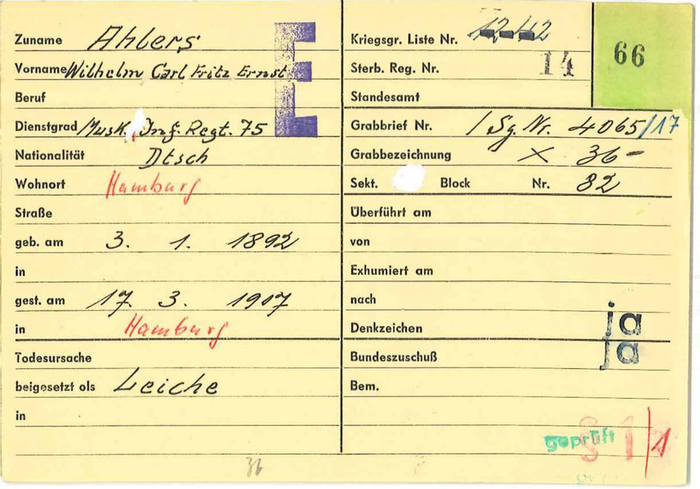 Zuname Ahlers
Vorname Wilhelm Carl Fritz Ernst
Beruf
Dienstgrad Musk. Inf. Regt. 75
Nationalität Dtsch
Wohnort Hamburg
Straße
geb. am 3. 1. 1892
in
gest. am 17. 3. 1917
in Hamburg
Todesursache
beigesetzt als Leiche
in
E
Kriegsgr. Liste Nr.
66
Sterb. Reg. Nr. 14
Standesamt
Grabbrief Nr. / Sg. Nr. 4065/17
Grabbezeichnung X 36-
Sekt. Block Nr. 32
Überführt am
von
Exhumiert am
nach
Denkzeichen ja
Bundeszuschuß ja
Bem.
geprüft § 1/1
36